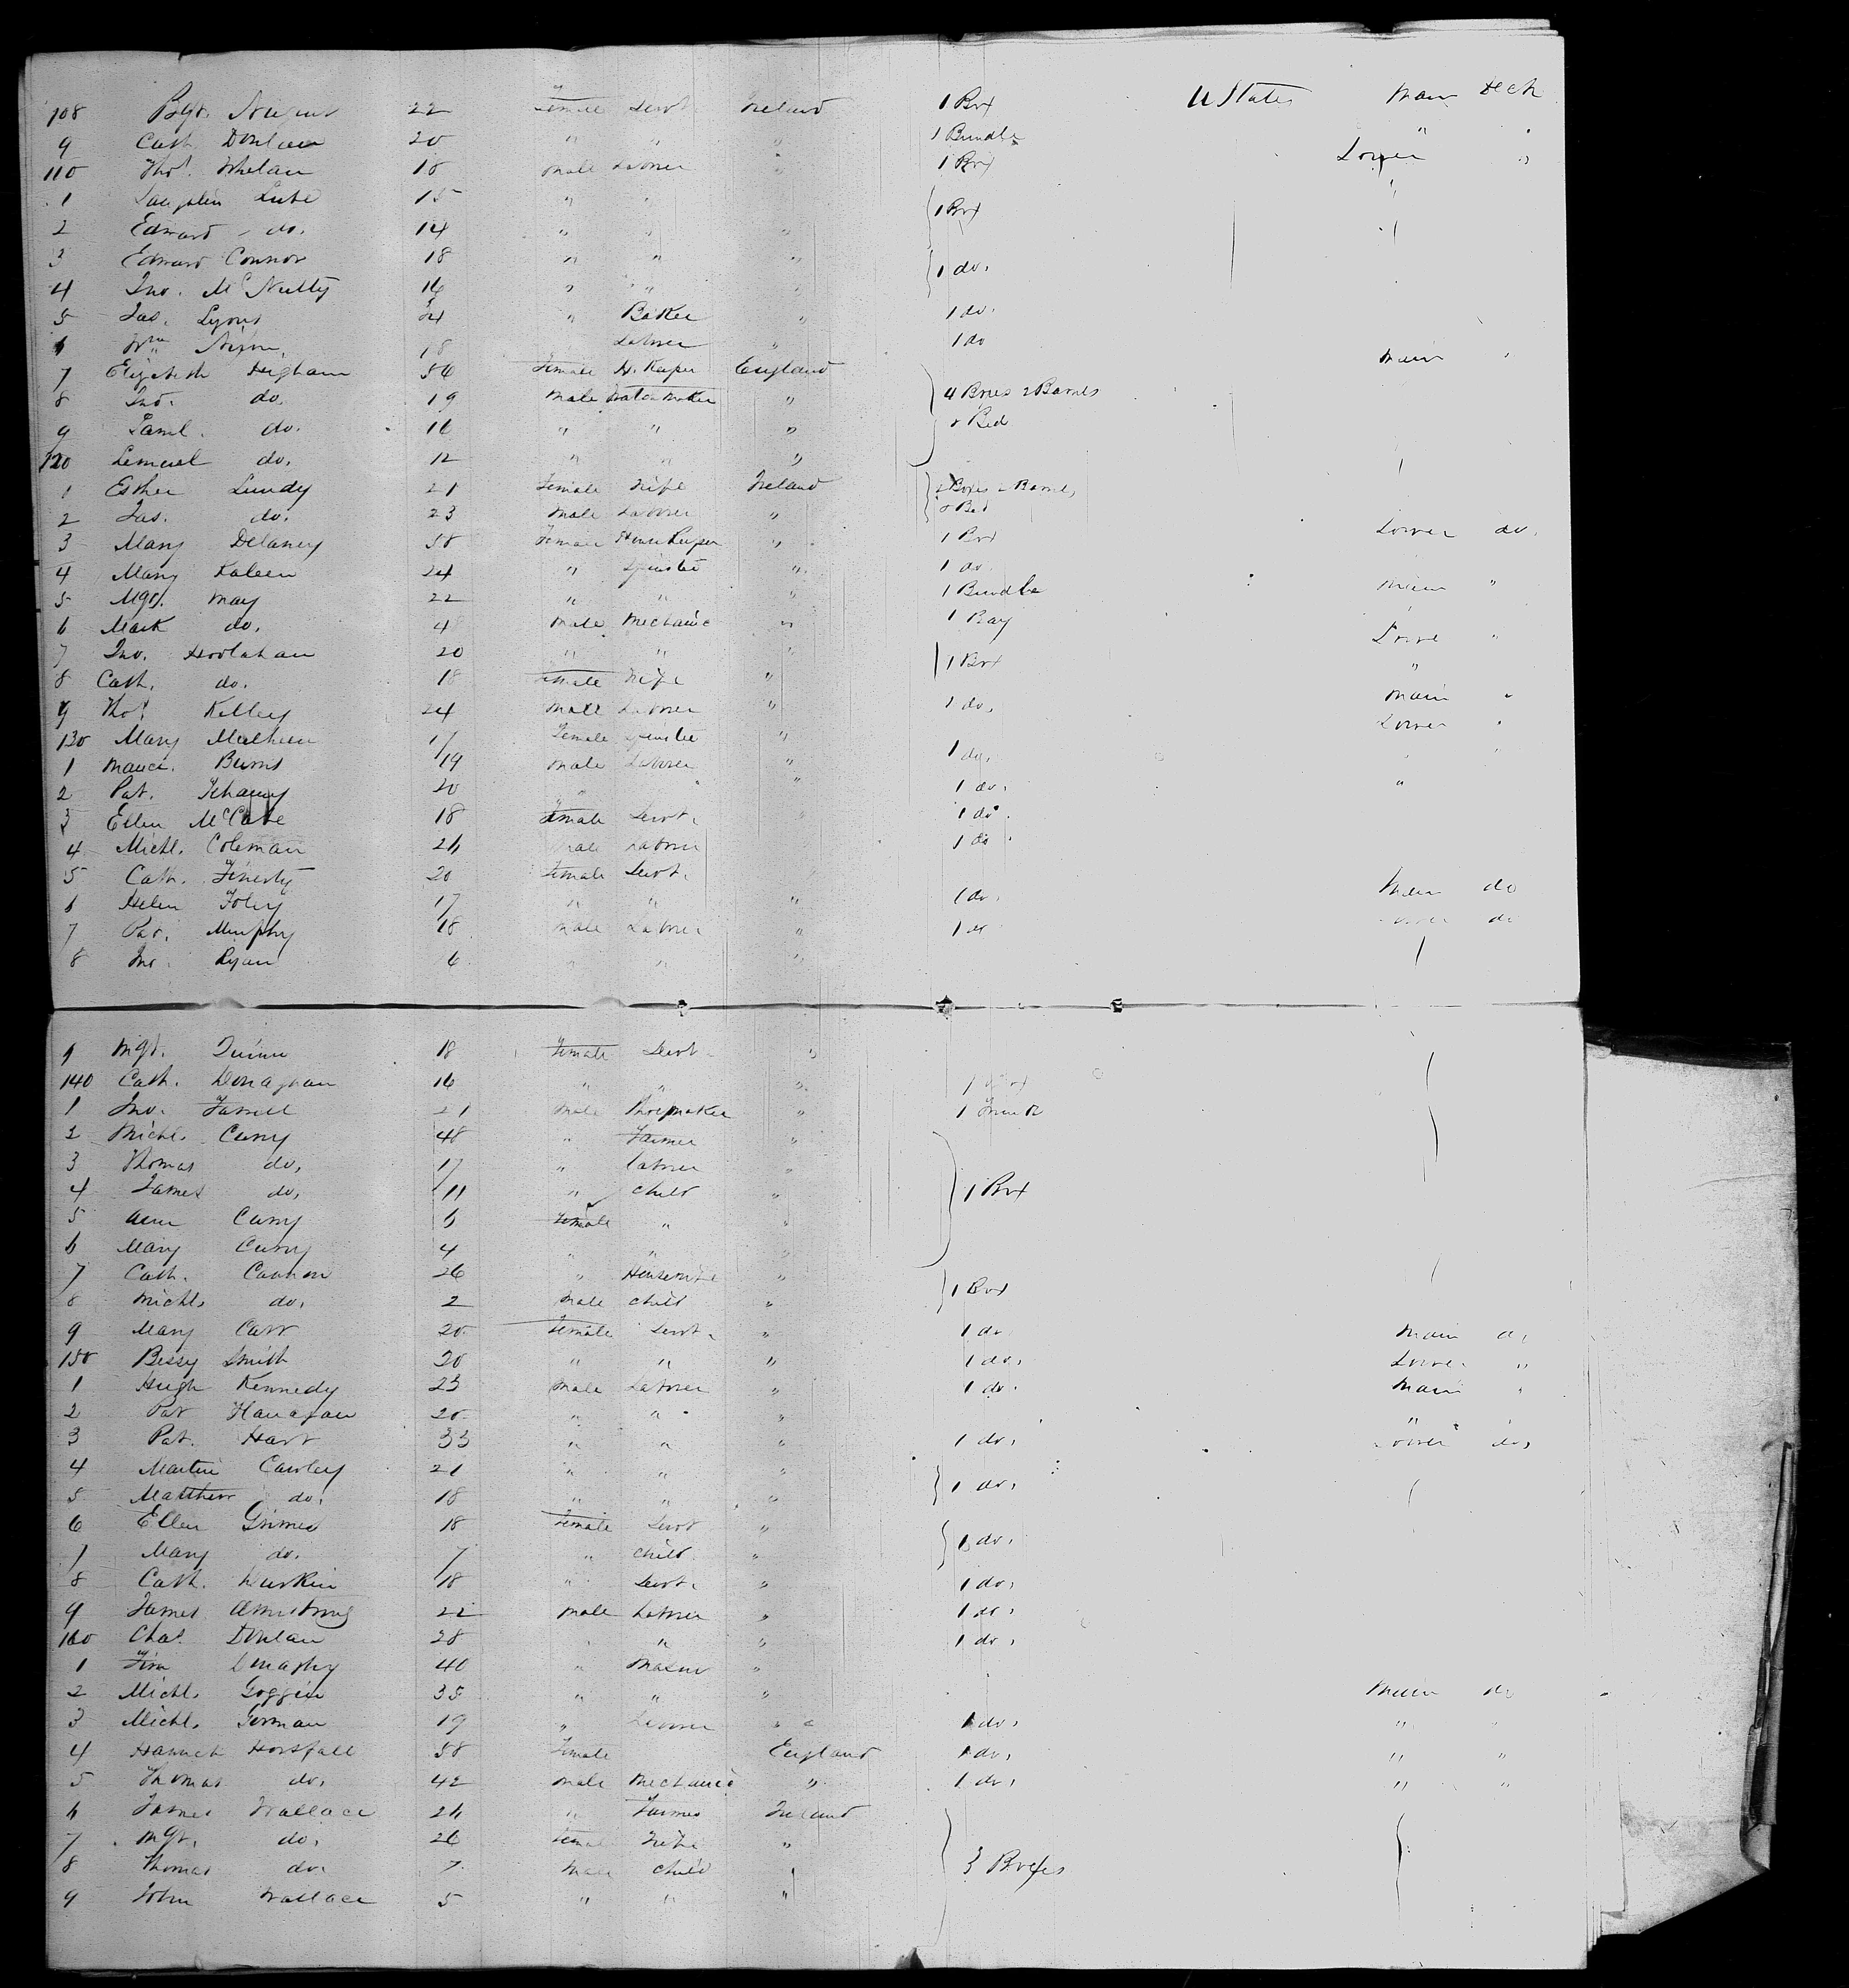 108 Bgt. Nugent 22 Female Servt. Ireland 1 Box U States Main Deck
9 Cath. Donlan 20 " " " 1 Bundle " "
110 Thos. Whelan 18 Male Laborer " 1 Box Lower "
1 Laughlin 15 " " 1 Box "
2 Edward do. 14 " " "
3 Edward Connor 18 " " " 1 do.
4 Jno. McNulty 16 " "
5 Jas. Lyons 24 " Baker " 1 do.
6 Wm. Nixon 18 Laborer " 1 do
7 Elizabeth Higham 56 Female H. Keeper England Main "
8 Jno. do. 19 Male Watch Maker " 4 Boxes 2 Barrels
9 Saml. do. 16 " " " & Bed
120 Lemuel do. 12 " " "
1 Esther Lundy 21 Female Wife Ireland 2 Boxes 2 Barrels
2 Jas. do. 23 Male Laborer " & Bed
3 Mary Delaney 58 Female House Keeper " 1 Box Lower do.
4 Mary Kaleen 24 " Spinster " 1 do.
5 Mgt. May 22 " " " 1 Bundle Main "
6 Mark do. 48 Male Mechanic " 1 Bag
7 Jno. Hoolahan 20 " " " 1 Box Lower "
8 Cath. do. 18 Female Wife " "
9 Thos. Kelley 24 Male Laborer " 1 do. Main "
130 Mary 17 Female Spinster " Lower "
1 Burns 19 Male Laborer " 1 do. " "
2 Pat. 20 " " " 1 do. "
3 Ellen McCabe 18 Female Servt. 1 do.
4 Michl. Coleman 26 Male Laborer 1 do.
5 Cath. Finerty 20 Female Servt.
6 Helen Foley 17 " " " 1 do. Main do
7 Pat. Murphy 18 Male Laborer " 1 do Lower do
8 Jno. Ryan 6 " " "
9 Mgt. Quinn 18 Female Servt. "
140 Cath. Donaghan 16 " " " 1 Box
1 Jno. Farrell 21 Male Shoemaker " 1 Trunk
2 Michl. Curry 48 " Farmer "
3 Thomas do. 17 " Laborer "
4 James do. 11 " Child " 1 Box
5 Ann Curry 6 Female " "
6 Mary Curry 4 " " "
7 Cath. Cannon 26 " Housewife "
8 Michl. do. 2 Male Child " 1 Box
9 Mary Carr 20 Female Servt. " 1 do Main do
150 Bessy Smith 20 " " " 1 do. Lower "
1 Hugh Kennedy 23 Male Laborer " 1 do. Main "
2 Pat Flanagan 20 " " " "
3 Pat. Hart 33 " " " 1 do. Lower do.
4 Martin Cawley 21 " " " 1 do.
5 Matthew do. 18 " " "
6 Ellen Grimes 18 Female Servt "
7 Mary do. 7 " Child " 1 do.
8 Cath. Durkin 18 " Servt. " 1 do.
9 James Armstrong 22 Male Laborer " 1 do.
160 Chas. Donlan 28 " " " 1 do.
1 Tim 40 " Mason "
2 Michl. Goggin 35 " " " Main do
3 Michl. Gorman 19 " Laborer " 1 do. " "
4 Hannah Horsfall 58 Female England 1 do. " "
5 Thomas do. 42 Male Mechanic " 1 do. " "
6 James Wallace 26 " Farmer Ireland
7 Mgt. do. 26 Female Wife "
8 Thomas do. 7 Male Child " 3 Boxes
9 John Wallace 5 " " "